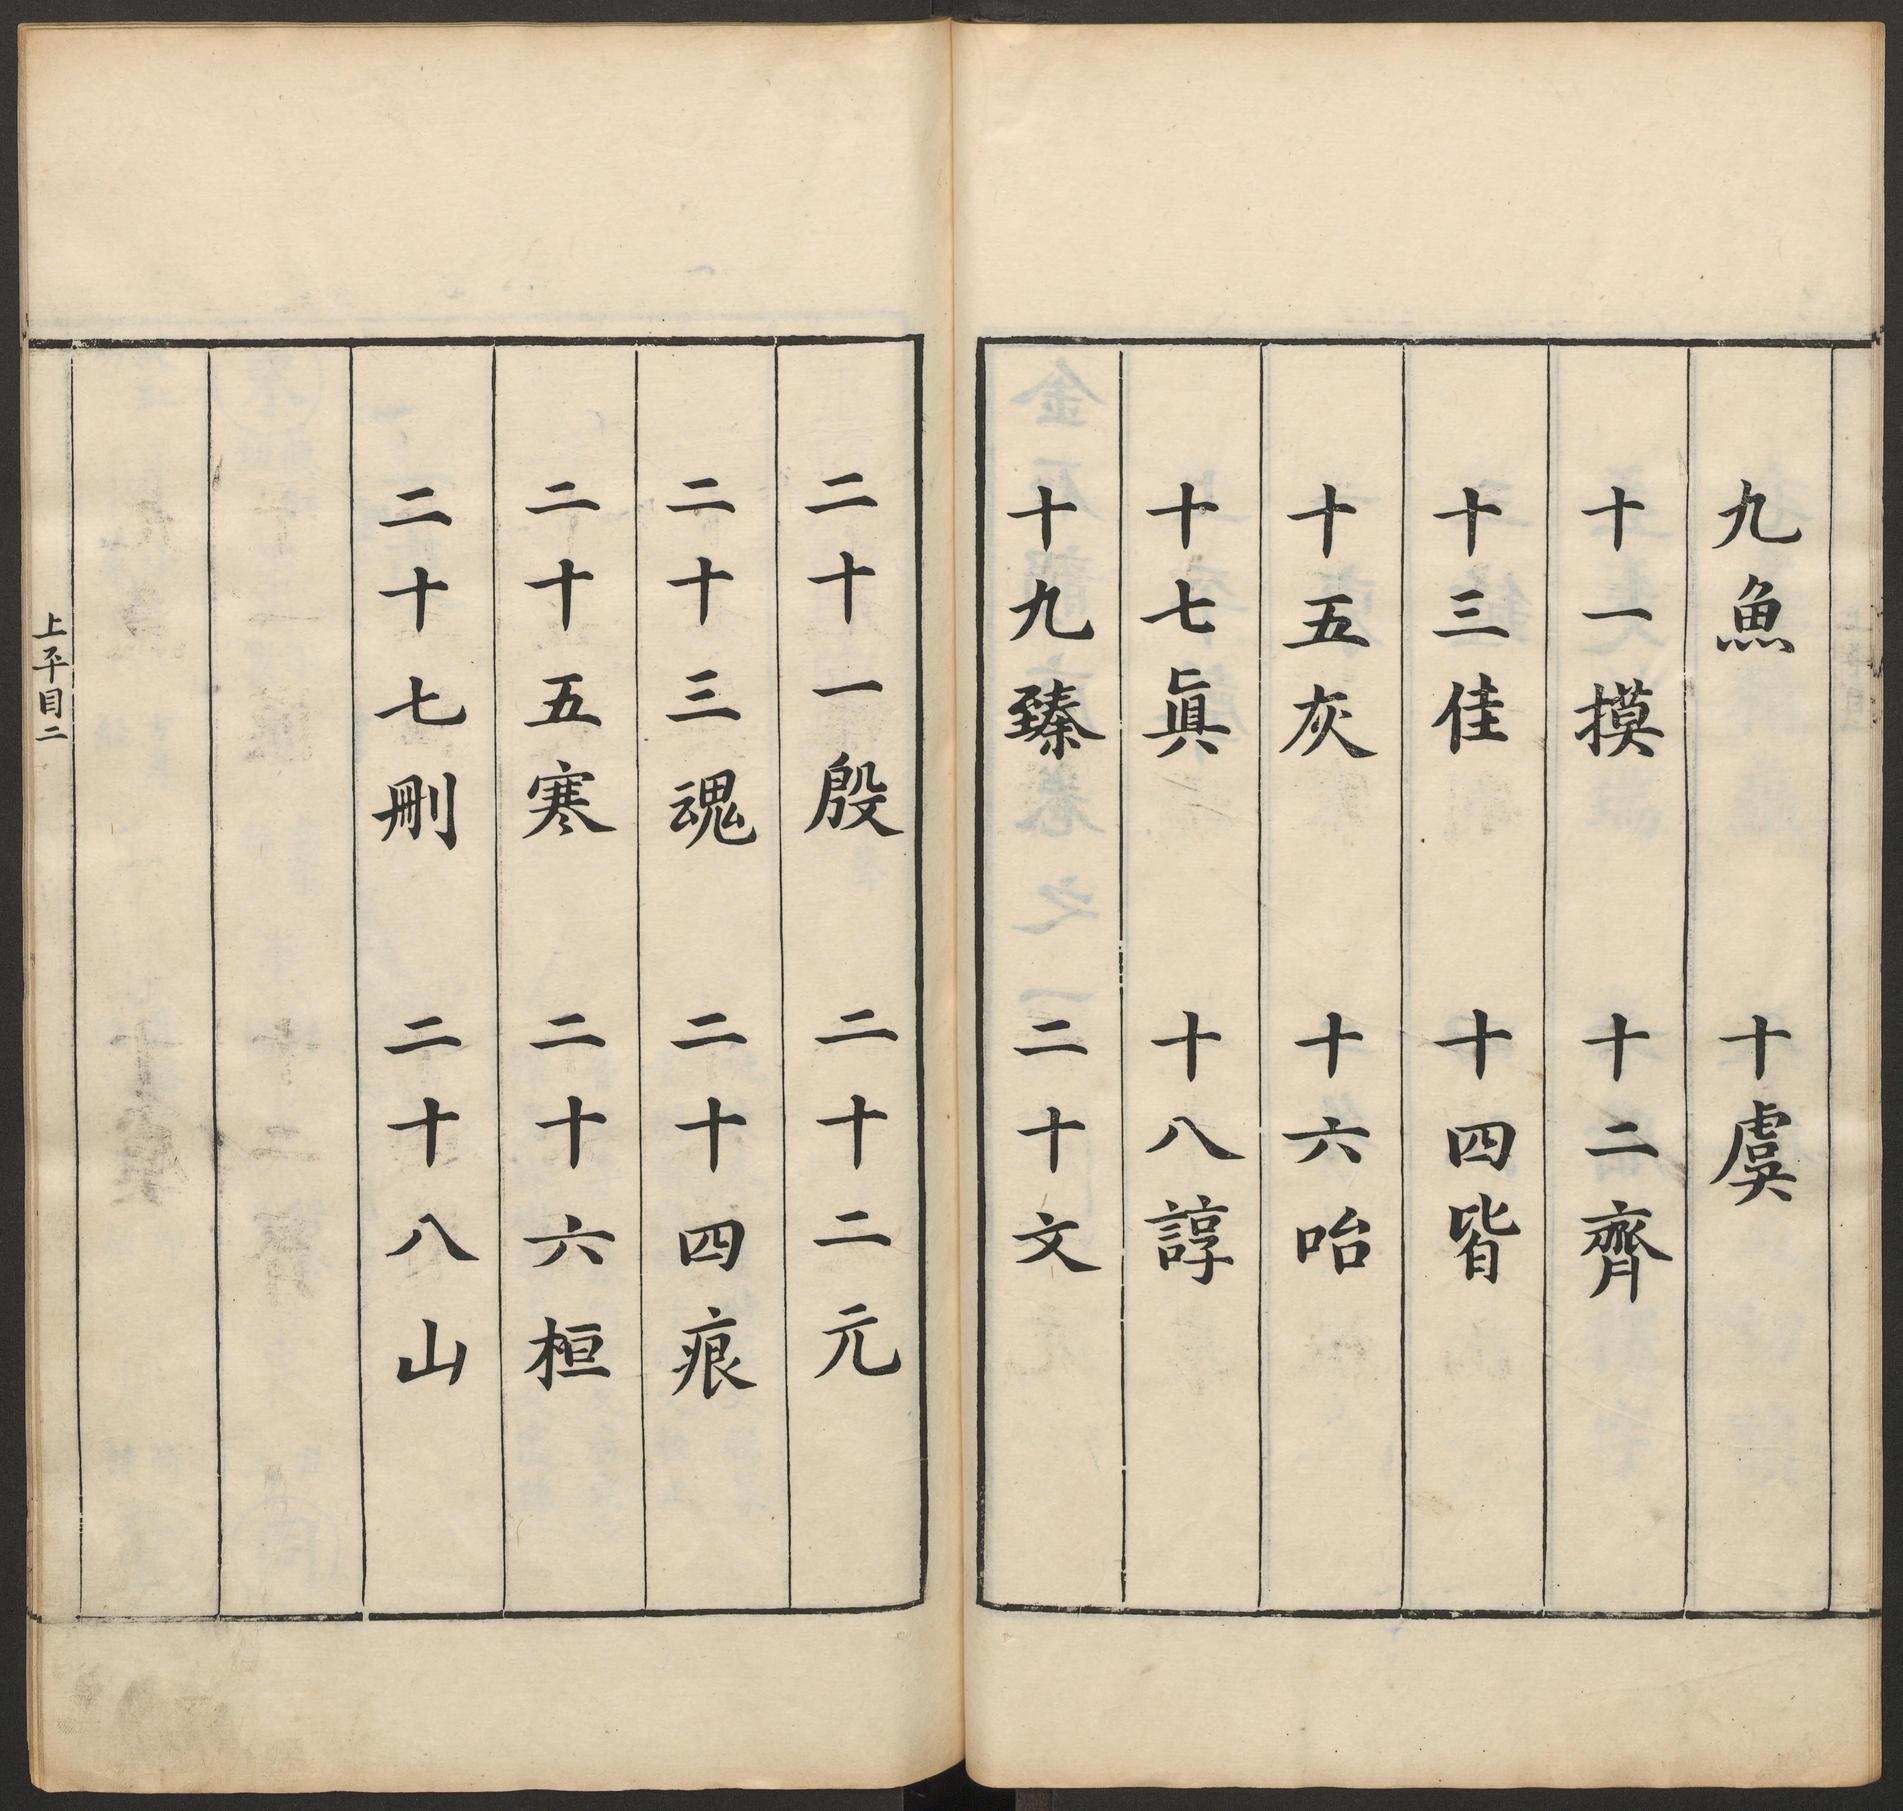 九魚　十虞
十一摸　十二齊
十三佳　十四皆
十五灰　十六咍
十七眞　十八諄
十九臻　二十文
二十一殷　二十二元
二十三魂　二十四痕
二十五寒　二十六桓
二十七刪　二十八山
上平目二